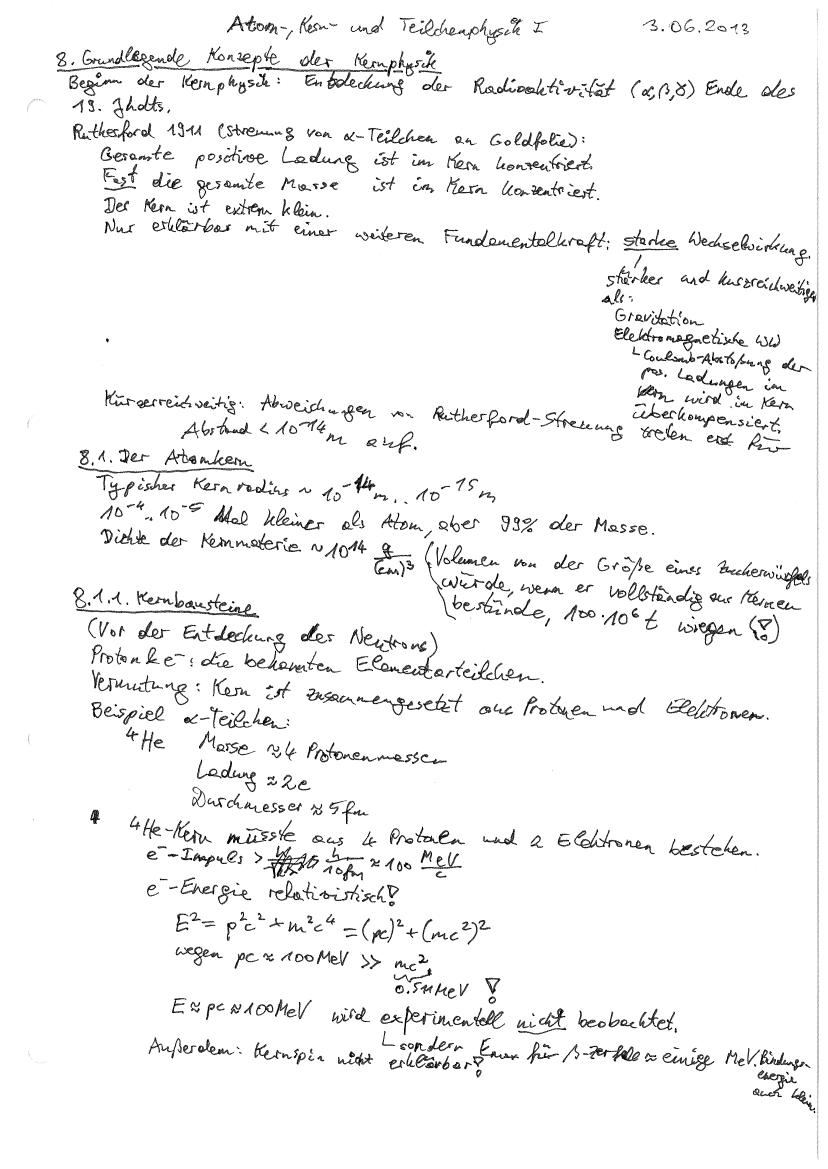 Atom-, Kern- und Teilchenphysik I 3.06.2013
8. Grundlegende Konzepte der Kernphysik
Beginn der Kernphysik: Entdeckung der Radioaktivität (α,β,γ) Ende des
19. Jhdts.
Rutherford 1911 (Streuung von α-Teilchen an Goldfolie):
Gesamte positive Ladung ist im Kern konzentriert.
Fast die gesamte Masse ist im Kern konzentriert.
Der Kern ist extrem klein.
Nur erklärbar mit einer weiteren Fundamentalkraft: starke Wechselwirkung.
stärker und kurzreichweitiger
als:
Gravitation
Elektromagnetische WW
Coulomb-Abstoßung der
pos. Ladungen im
Kern wird im Kern
überkompensiert.
Kürzerreichweitig: Abweichungen von Rutherford-Streuung treten erst für
Abstand < 10^-14 m auf.
8.1. Der Atomkern
Typischer Kernradius ~ 10^-14 m .. 10^-15 m
10^-4 .. 10^-5 Mal kleiner als Atom, aber 99% der Masse.
Dichte der Kernmaterie ~ 10^14 g/(cm)^3 (Volumen von der Größe eines Zuckerwürfels
würde, wenn er vollständig aus Kernen
bestünde, 100·10^6 t wiegen (!)
8.1.1. Kernbausteine
(Vor der Entdeckung des Neutrons)
Proton & e^-: die bekannten Elementarteilchen.
Vermutung: Kern ist zusammengesetzt aus Protonen und Elektronen.
Beispiel α-Teilchen:
^4He Masse ≈ 4 Protonenmassen
Ladung ≈ 2e
Durchmesser ≈ 5 fm
^4He-Kern müsste aus 4 Protonen und 2 Elektronen bestehen.
e^- -Impuls > h/10fm ≈ 100 MeV/c
e^- -Energie relativistisch!
E² = p²c² + m²c⁴ = (pc)² + (mc²)²
wegen pc ≈ 100 MeV >> mc²
0.511 MeV !
E ≈ pc ≈ 100 MeV wird experimentell nicht beobachtet,
sondern Emax für β-Zerfälle ≈ einige MeV. Bindungs-
energie
auch klein.
Außerdem: Kernspin nicht erklärbar!